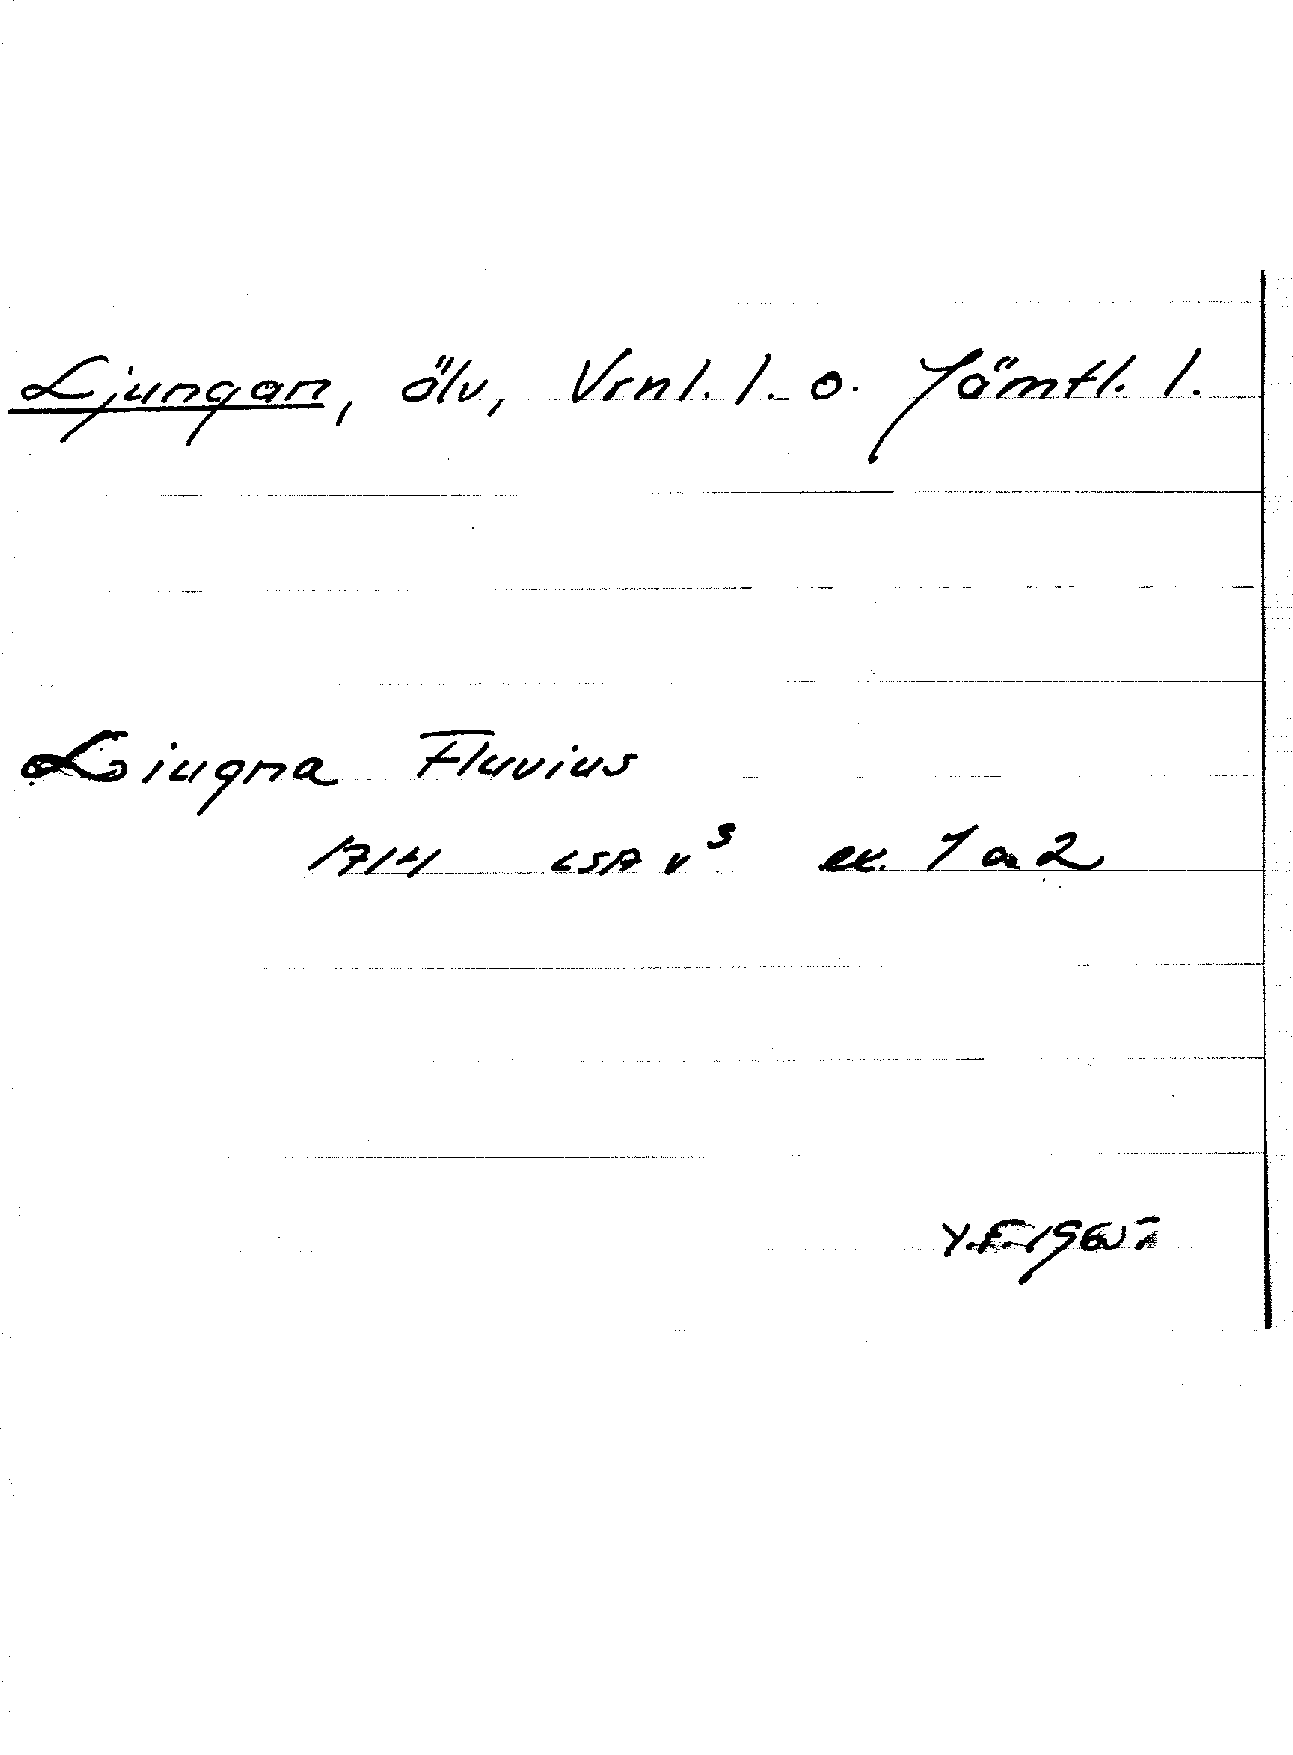 Ljungan, älv, Vrnl. l. o. Jämtl. l.
Liugna Fluvius
1714 LSA v³ ex. 1 a 2
Y.F. 1965